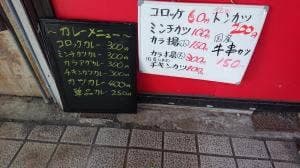 ~カレーメニュー~
コロッケカレー 300円
ミンチカツカレー 300円
カラアゲカレー 350円
チキンカツカレー 300円
カツカレー 400円
単品カレー 250円
コロッケ 60円
ミンチカツ 100円
カラ揚
150円
カラ揚 300円
チキンカツ 100円
トンカツ
200円
国産
牛串カツ
150円